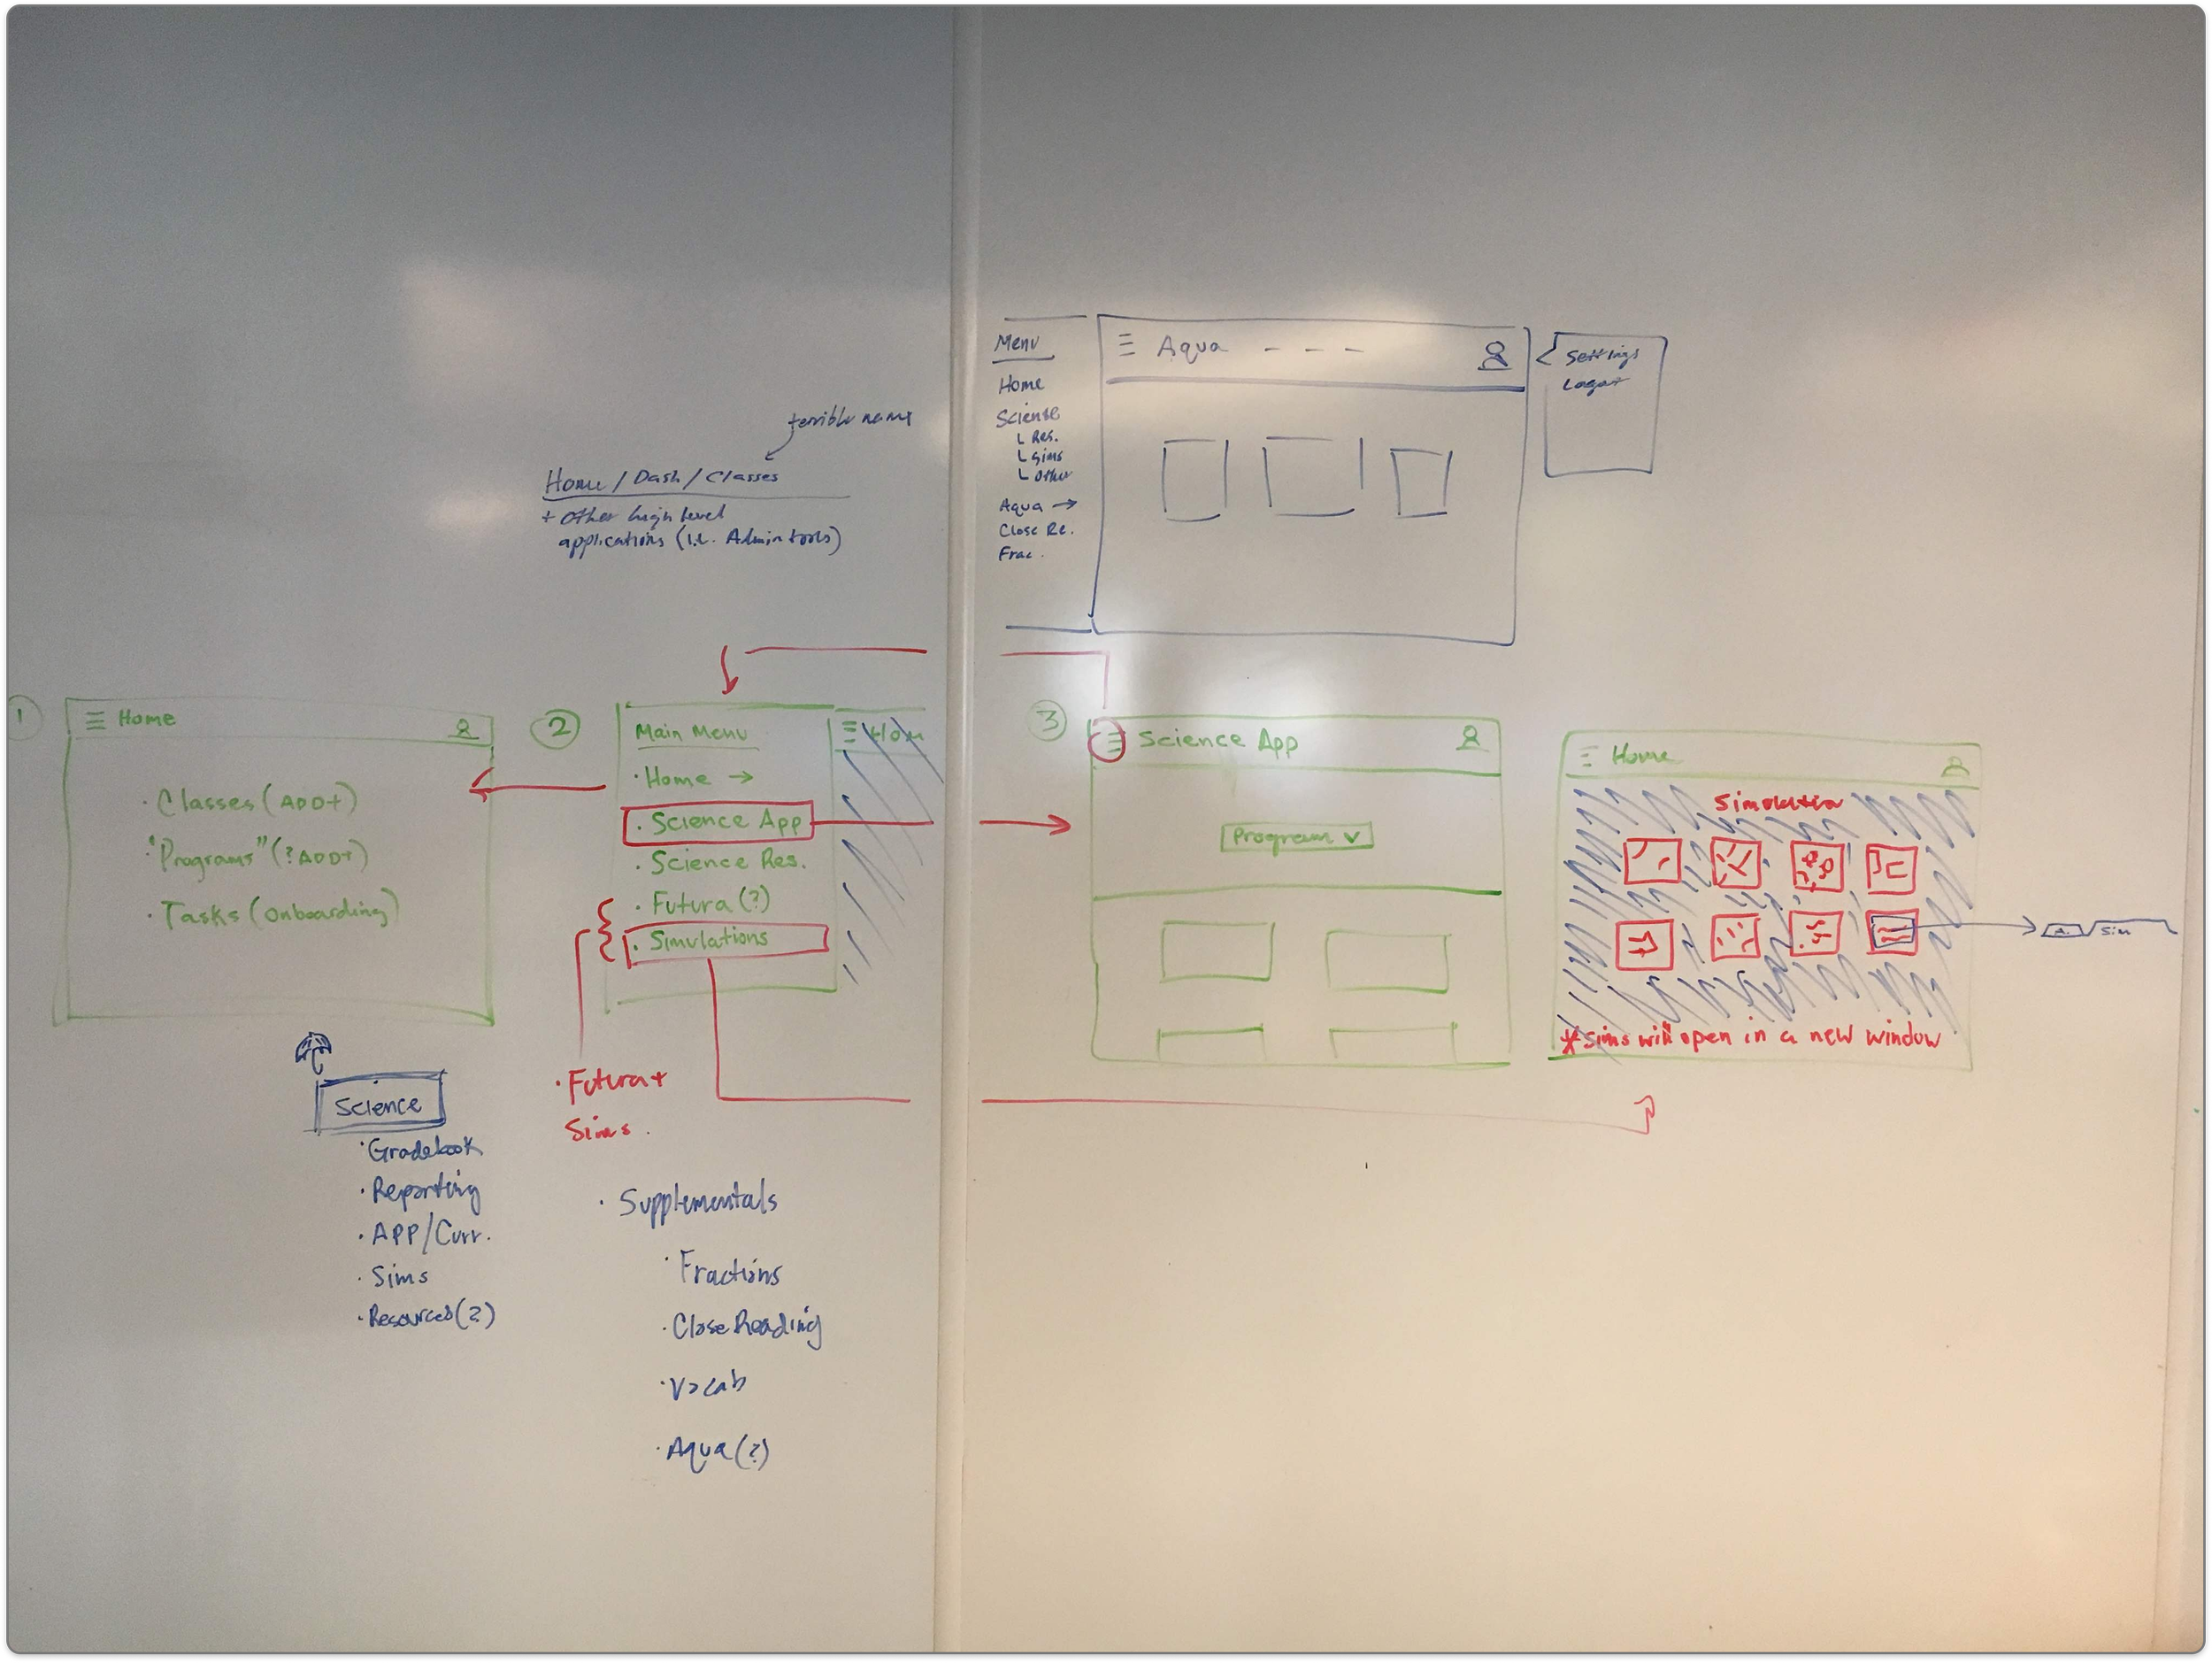 Menu
Home
Sciense
Res.
Sims
Other
Aqua →
Close Re.
Frac.
Aqua
Settings
Logout
terrible name
Home / Dash / Classes
+ Other high level
applications (i.e. Admin tools)
1
Home
· Classes (ADD+)
· "Programs" (? ADD+)
· Tasks (Onboarding)
2
Main Menu
· Home →
· Science App
· Science Res.
· Futura (?)
· Simulations
Hom
3
Science App
Program
Home
Simulation
* Sims will open in a new window
A.
Sim
Science
· Gradebook
· Reporting
· APP/Curr.
· Sims
· Resources (?)
· Futura +
Sims.
· Supplementals
· Fractions
· Close Reading
· Vocab
· Aqua (?)